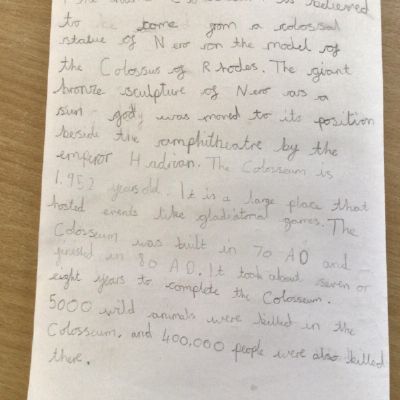 The name Colosseum is believed
to come from a colossal
statue of Nero on the model of
the Colossus of Rhodes. The giant
bronze sculpture of Nero as a
sun god was moved to its position
beside the amphitheatre by the
emperor Hadrian. The Colosseum is
1.952 years old. It is a large place that
hosted events like gladiatorial games. The
Colosseum was built in 70 AD and
finished in 80 AD. It took about seven or
eight years to complete the Colosseum.
5000 wild animals were killed in the
Colosseum. and 400,000 people were also killed
there.